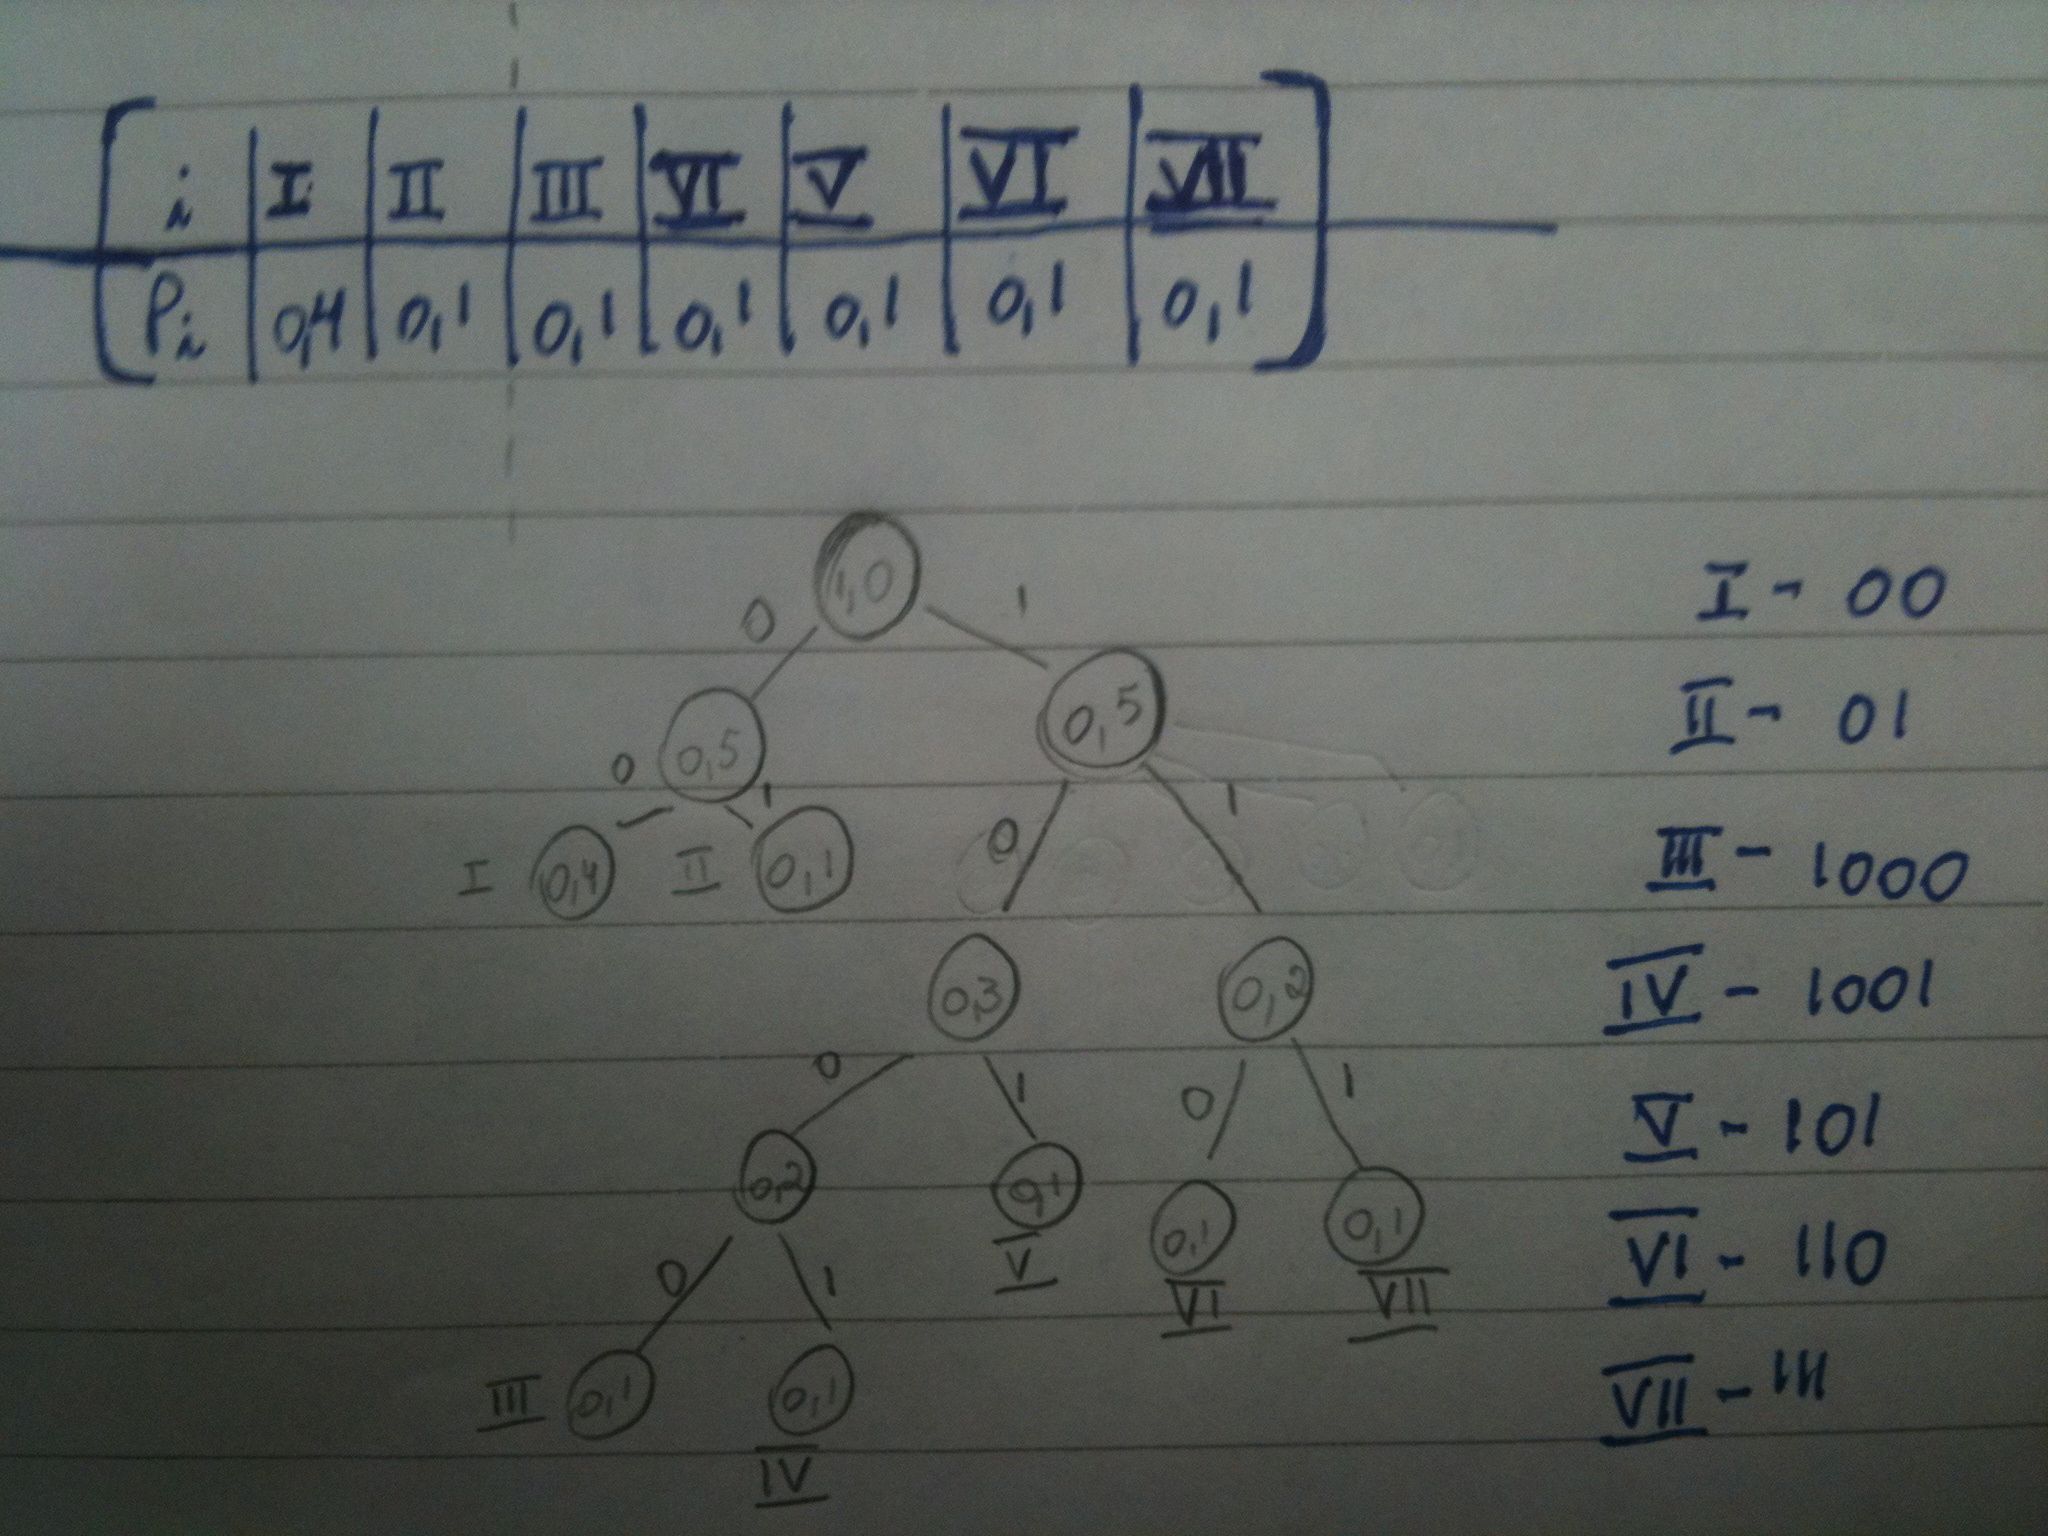 i I II III VI V VI VII
Pi 0,4 0,1 0,1 0,1 0,1 0,1 0,1
1,0
0 1
0,5 0,5
0 1 0 1
I 0,4 II 0,1
0,3 0,2
0 1 0 1
0,2 0,1 0,1 0,1
V VI VII
0 1
III 0,1 0,1
IV
I - 00
II - 01
III - 1000
IV - 1001
V - 101
VI - 110
VII - 111